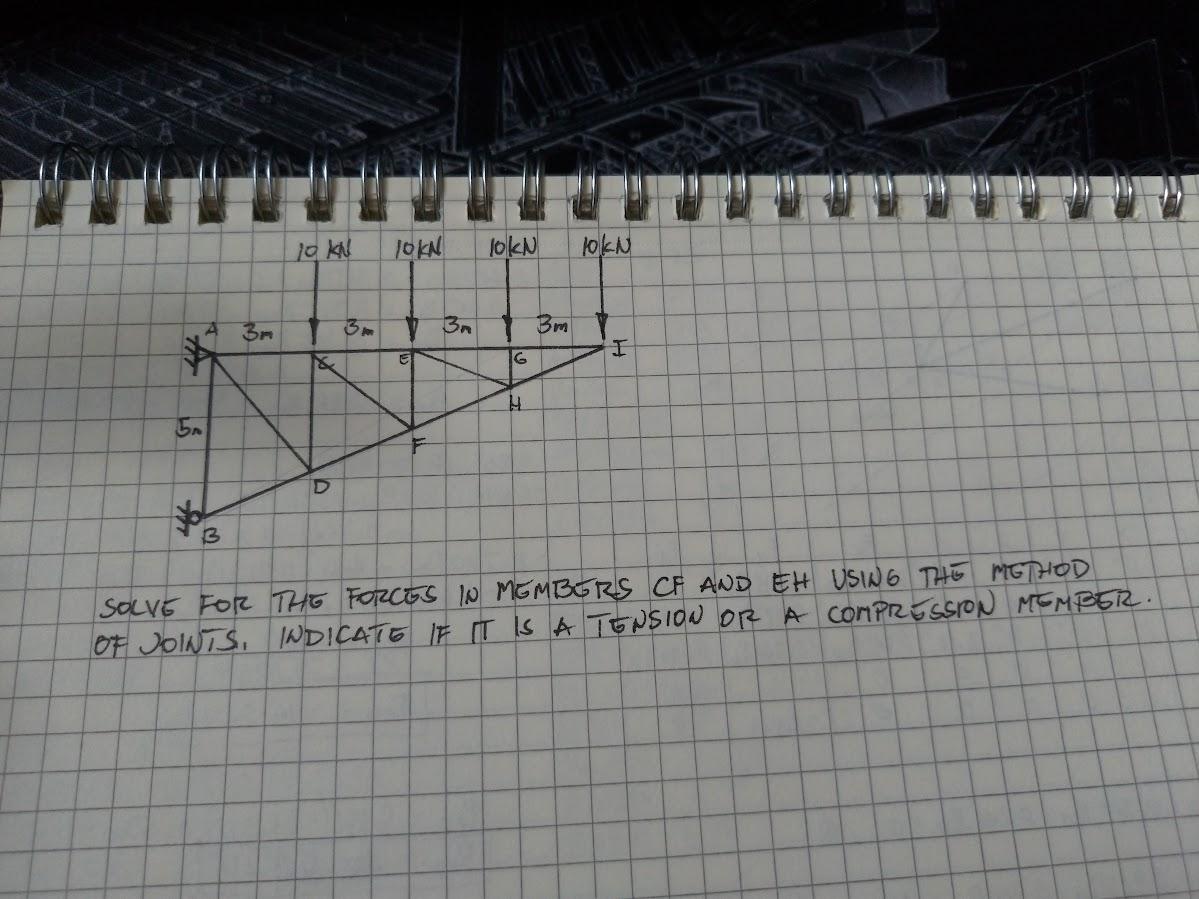 10 kN 10 kN 10 kN 10 kN
A 3m 3m 3m 3m
C E G I
5m H
F
D
B
SOLVE FOR THE FORCES IN MEMBERS CF AND EH USING THE METHOD
OF JOINTS. INDICATE IF IT IS A TENSION OR A COMPRESSION MEMBER.